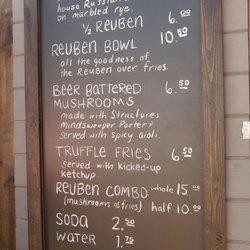 house Russian
on marbled rye.
½ REUBEN 6.00
REUBEN BOWL 10.50
all the goodness of
the Reuben over fries.
BEER BATTERED 6.50
MUSHROOMS
made with Structures
mindsweeper Porter!
served with spicy aioli.
TRUFFLE FRIES 6.50
served with kicked-up
ketchup
REUBEN COMBO whole 15.00
(mushrooms & fries) half 10.90
SODA 2.50
WATER 1.75